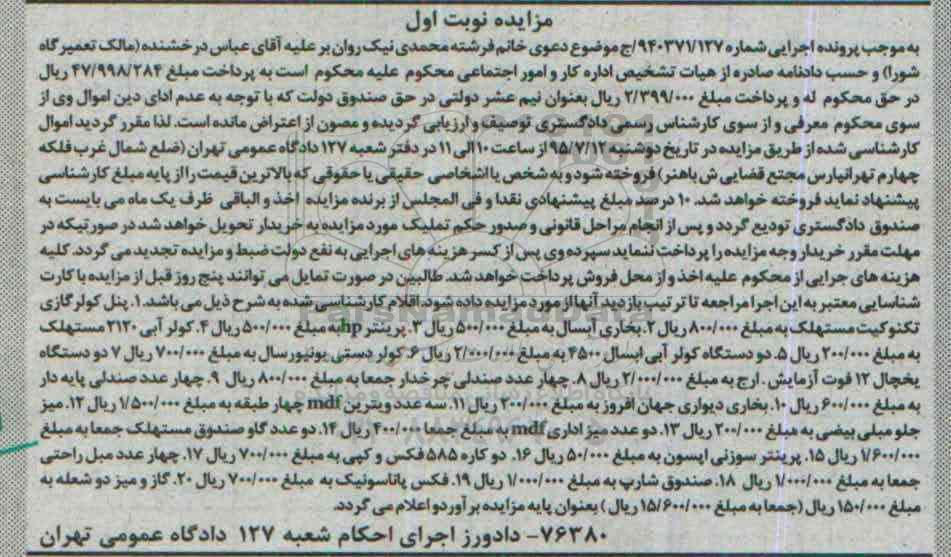 مزایده نوبت اول
به موجب پرونده اجرایی شماره ۹۴۰۳۷۱/۱۲۷/ج موضوع دعوی خانم فرشته محمدی نیک روان بر علیه آقای عباس درخشنده (مالک تعمیر گاه
شورا) و حسب دادنامه صادره از هیات تشخیص اداره کار و امور اجتماعی محکوم علیه محکوم است به پرداخت مبلغ ۴۷/۹۹۸/۲۸۴ ریال
در حق محکوم له و پرداخت مبلغ ۲/۳۹۹/۰۰۰ ریال بعنوان نیم عشر دولتی در حق صندوق دولت که با توجه به عدم ادای دین اموال وی از
سوی محکوم معرفی و از سوی کارشناس رسمی دادگستری توصیف و ارزیابی گردیده و مصون از اعتراض مانده است. لذا مقرر گردید اموال
کارشناسی شده از طریق مزایده در تاریخ دوشنبه ۹۵/۷/۱۲ از ساعت ۱۰ الی ۱۱ در دفتر شعبه ۱۲۷ دادگاه عمومی تهران (ضلع شمال غرب فلکه
چهارم تهرانپارس مجتمع قضایی ش باهنر) فروخته شود و به شخص یا اشخاصی حقیقی یا حقوقی که بالاترین قیمت را از پایه مبلغ کارشناسی
پیشنهاد نماید فروخته خواهد شد. ۱۰ درصد مبلغ پیشنهادی نقدا و فی المجلس از برنده مزایده اخذ و الباقی ظرف یک ماه می بایست به
صندوق دادگستری تودیع گردد و پس از انجام مراحل قانونی و صدور حکم تملیک مورد مزایده به خریدار تحویل خواهد شد در صورتیکه در
مهلت مقرر خریدار وجه مزایده را پرداخت ننماید سپرده وی پس از کسر هزینه های اجرایی به نفع دولت ضبط و مزایده تجدید می گردد. کلیه
هزینه های جرایی از محکوم علیه اخذ و از محل فروش پرداخت خواهد شد. طالبین در صورت تمایل می توانند پنج روز قبل از مزایده با کارت
شناسایی معتبر به این اجرا مراجعه تا ترتیب بازدید آنها از مورد مزایده داده شود. اقلام کارشناسی شده به شرح ذیل می باشد. ۱. پنل کولر گازی
تکنوکیت مستهلک به مبلغ ۸۰۰/۰۰۰ ریال ۲. بخاری آبسال به مبلغ ۵۰۰/۰۰۰ ریال ۳. پرینتر hp به مبلغ ۵۰۰/۰۰۰ ریال ۴. کولر آبی ۲۱۲۰ مستهلک
به مبلغ ۲۰۰/۰۰۰ ریال ۵. دو دستگاه کولر آبی ابسال ۴۵۰۰ به مبلغ ۲/۰۰۰/۰۰۰ ریال ۶. کولر دستی یونیورسال به مبلغ ۷۰۰/۰۰۰ ریال ۷ دو دستگاه
یخچال ۱۲ فوت آزمایش. ارج به مبلغ ۲/۰۰۰/۰۰۰ ریال ۸. چهار عدد صندلی چرخدار جمعا به مبلغ ۸۰۰/۰۰۰ ریال ۹. چهار عدد صندلی پایه دار
به مبلغ ۶۰۰/۰۰۰ ریال ۱۰. بخاری دیواری جهان افروز به مبلغ ۲۰۰/۰۰۰ ریال ۱۱. سه عدد ویترین mdf چهار طبقه به مبلغ ۱/۵۰۰/۰۰۰ ریال ۱۲. میز
جلو مبلی بیضی به مبلغ ۲۰۰/۰۰۰ ریال ۱۳. دو عدد میز اداری mdf به مبلغ جمعا ۴۰۰/۰۰۰ ریال ۱۴. دو عدد گاو صندوق مستهلک جمعا به مبلغ
۱/۶۰۰/۰۰۰ ریال ۱۵. پرینتر سوزنی اپسون به مبلغ ۵۰/۰۰۰ ریال ۱۶. دو کاره ۵۸۵ فکس و کپی به مبلغ ۷۰۰/۰۰۰ ریال ۱۷. چهار عدد مبل راحتی
جمعا به مبلغ ۱/۰۰۰/۰۰۰ ریال ۱۸. صندوق شارپ به مبلغ ۱/۰۰۰/۰۰۰ ریال ۱۹. فکس پاناسونیک به مبلغ ۷۰۰/۰۰۰ ریال ۲۰. گاز و میز دو شعله به
مبلغ ۱۵۰/۰۰۰ ریال (جمعا به مبلغ ۱۵/۶۰۰/۰۰۰ ریال) بعنوان پایه مزایده برآورد و اعلام می گردد.
۷۶۳۸۰- دادورز اجرای احکام شعبه ۱۲۷ دادگاه عمومی تهران
ParsNamadData